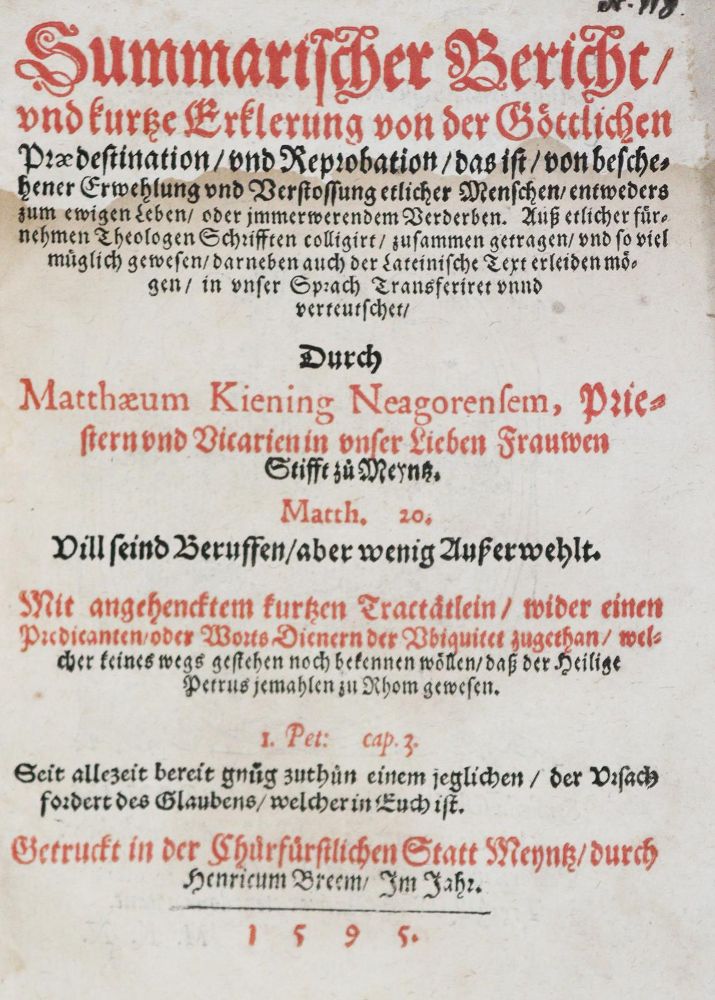 Summarischer Bericht/
vnd kurtze Erklerung von der Göttlichen
Prædestination/ vnd Reprobation/ das ist/ von besche⸗
hener Erwehlung vnd Verstossung etlicher Menschen/ entweders
zum ewigen Leben/ oder jmmerwerendem Verderben. Auß etlicher für⸗
nehmen Theologen Schrifften colligirt/ zusammen getragen/ vnd so viel
müglich gewesen/ darneben auch der Lateinische Text erleiden mö⸗
gen/ in vnser Sprach Transferiret vnnd
verteutschet/
Durch
Matthæum Kiening Neagorensem, Prie⸗
stern vnd Vicarien in vnser Lieben Frauwen
Stifft zů Meyntz.
Matth. 20.
Vill seind Beruffen/ aber wenig Außerwehlt.
Mit angehencktem kurtzen Tractätlein/ wider einen
Predicanten/ oder Worts Dienern der Vbiquitet zugethan/ wel⸗
cher keines wegs gestehen noch bekennen wöllen/ daß der Heilige
Petrus jemahlen zu Rhom gewesen.
1. Pet: cap. 3.
Seit allezeit bereit gnůg zuthůn einem jeglichen/ der Vrsach
fordert des Glaubens/ welcher in Euch ist.
Getruckt in der Churfürstlichen Statt Meyntz/ durch
Henricum Breem/ Im Jahr.
1 5 9 5.